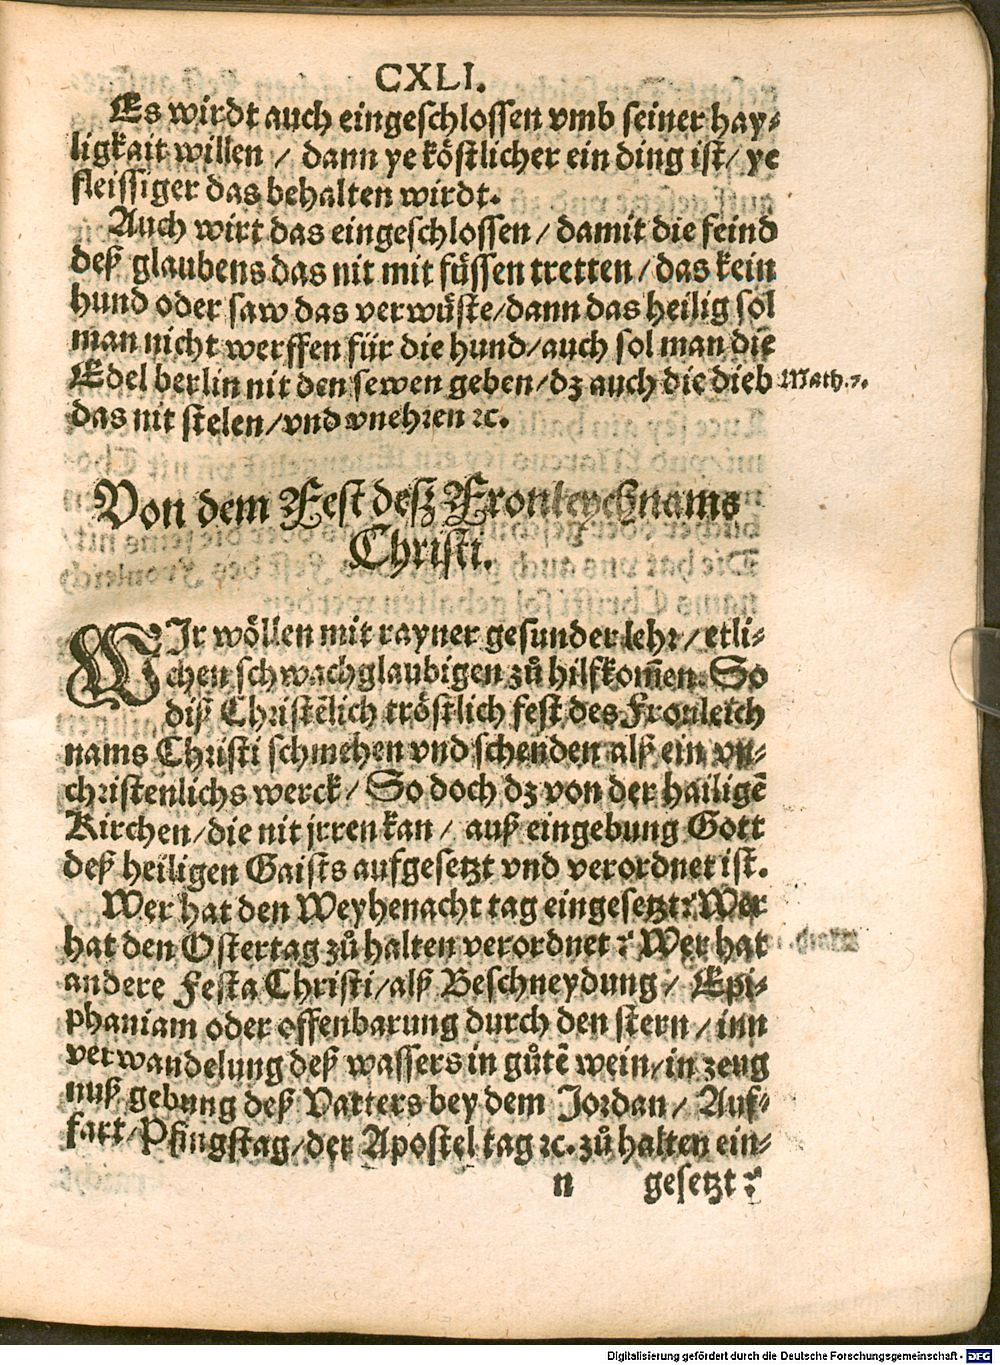 CXLI.
Es wirdt auch eingeschlossen vmb seiner hay-
ligkait willen / dann ye köstlicher ein ding ist / ye
fleissiger das behalten wirdt.
Auch wirt das eingeschlossen / damit die feind
deß glaubens das nit mit füssen tretten / das kein
hund oder saw das verwüste / dann das heilig sol
man nicht werffen für die hund / auch sol man die
Edel berlin nit den sewen geben / dz auch die dieb Math. 7.
das nit stelen / vnd vnehren ꝛc.
Von dem Fest desz Fronleychnams
Christi.
WIr wöllen mit rayner gesunder lehr / etli-
chen schwachglaubigen zů hilf kom̃en. So
diß Christelich tröstlich fest des Fronleich
nams Christi schmehen vnd schenden alß ein vn-
christenlichs werck / So doch dz von der hailigẽ
Kirchen / die nit jrren kan / auß eingebung Gott
deß heiligen Gaists aufgesetzt vnd verordnet ist.
Wer hat den Weyhenacht tag eingesetzt? Wer
hat den Ostertag zů halten verordnet? Wer hat
andere Festa Christi / alß Beschneydung / Epi-
phaniam oder offenbarung durch den stern / inn
verwandelung deß wassers in gůtẽ wein / in zeug
nuß gebung deß Vatters bey dem Jordan / Auf-
fart / Pfingstag / der Apostel tag ꝛc. zů halten ein-
n gesetzt?
Digitalisierung gefördert durch die Deutsche Forschungsgemeinschaft - DFG